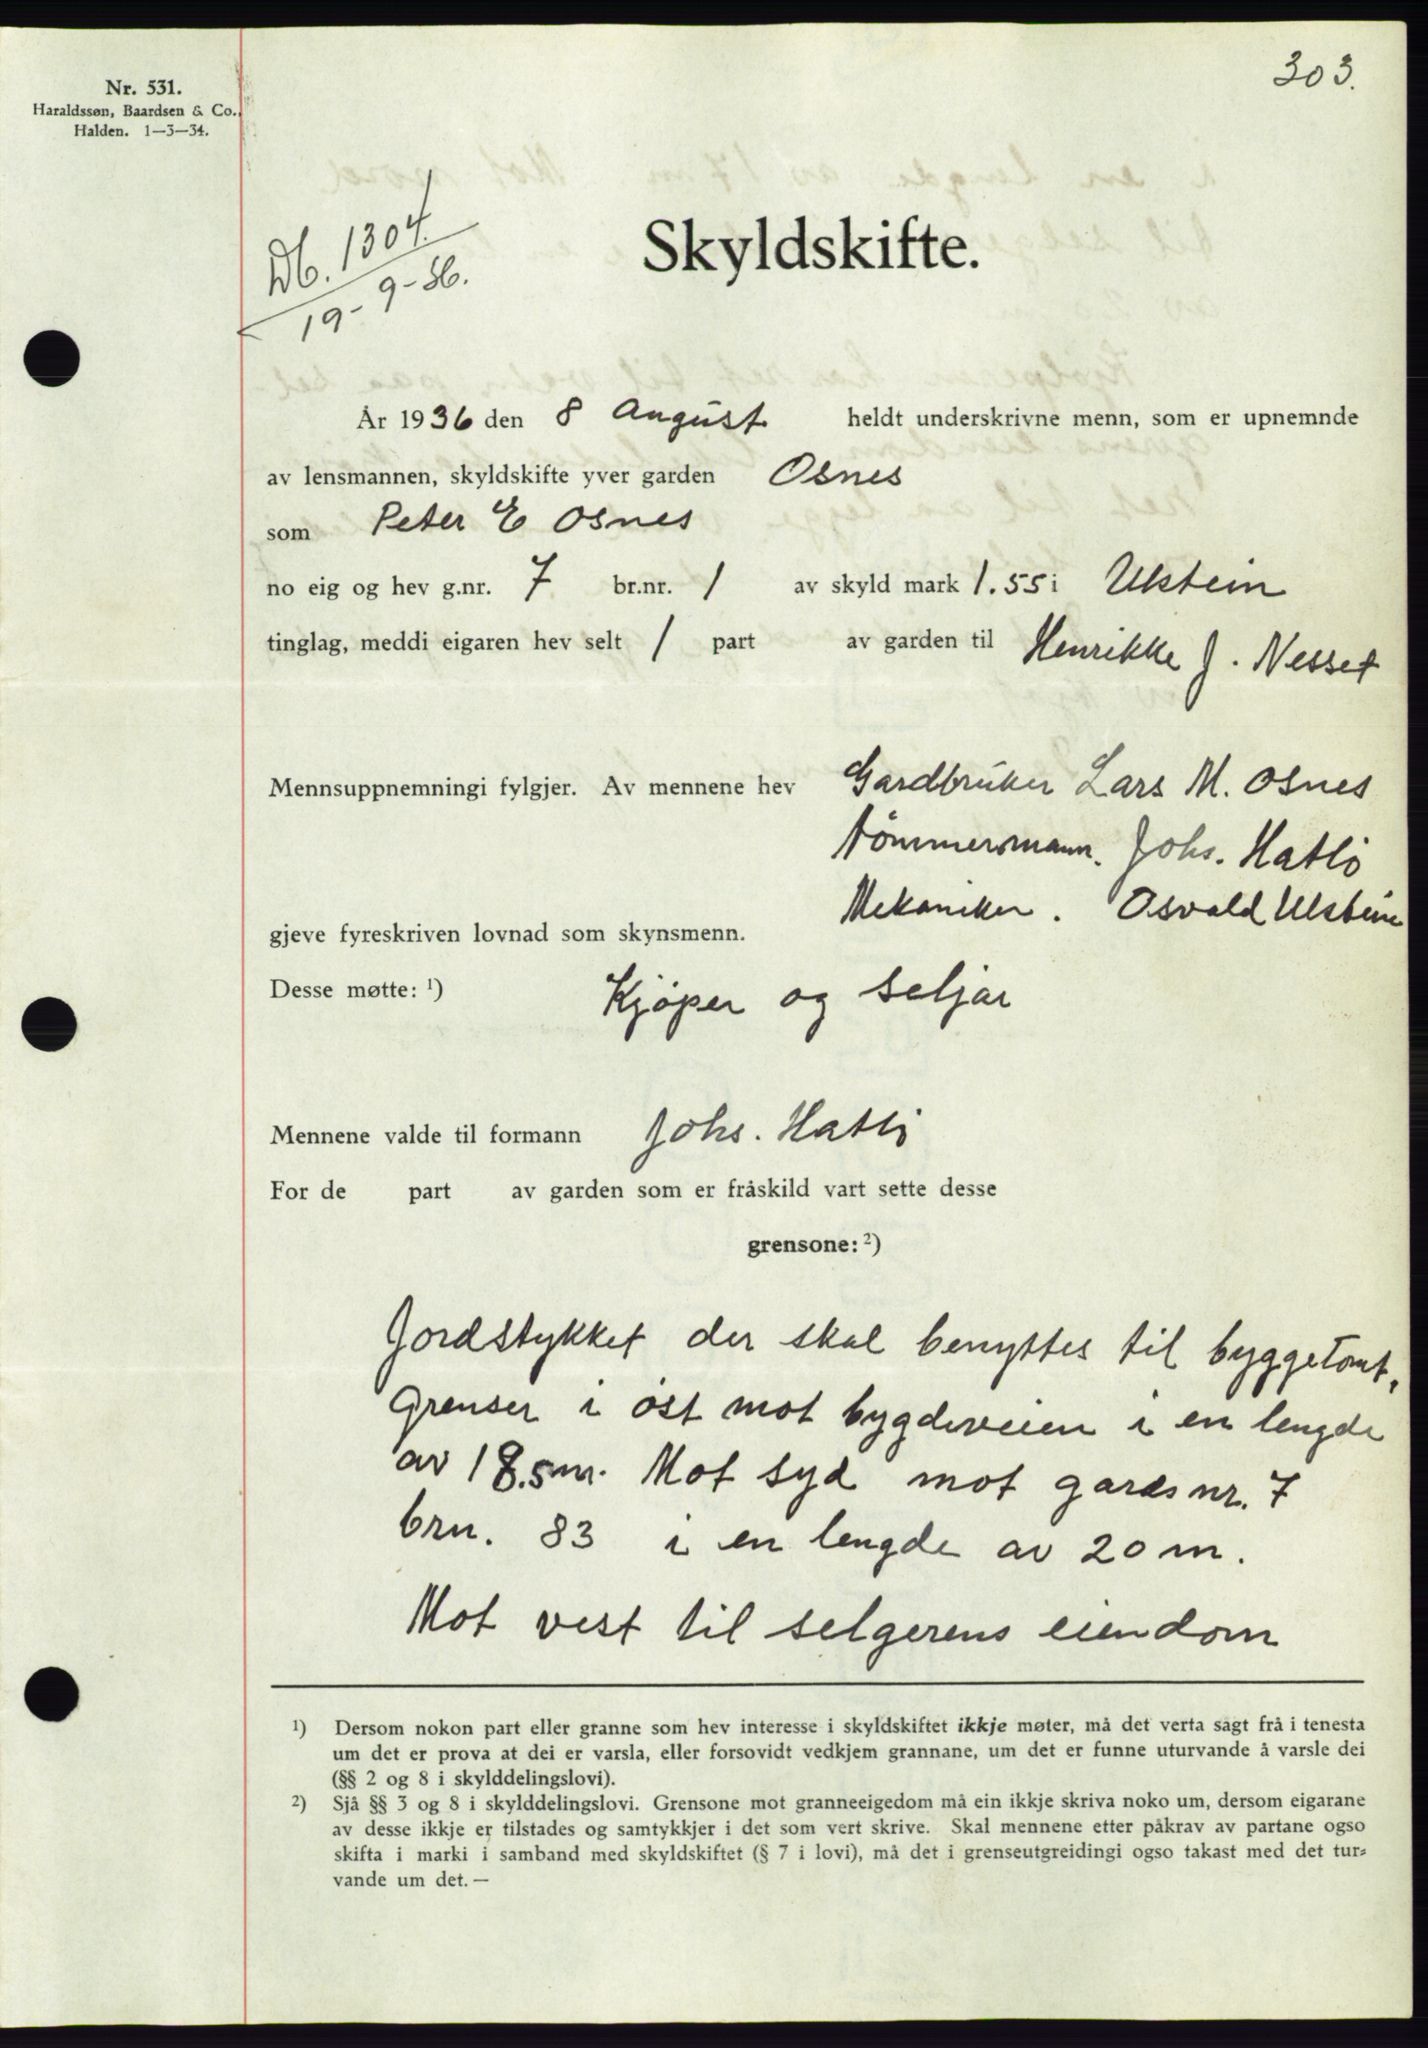 303.
Nr. 531.
Haraldssøn, Baardsen & Co.,
Halden. 1—3—34.
Db. 1304.
19-9-36.
Skyldskifte.
År 1936 den 8 August heldt underskrivne menn, som er upnemnde
av lensmannen, skyldskifte yver garden Osnes
som Peter E Osnes
no eig og hev g.nr. 7 br.nr. 1 av skyld mark 1.55 i Ulstein
tinglag, meddi eigaren hev selt 1 part av garden til Henrikke J. Nesset
Mennsuppnemningi fylgjer. Av mennene hev Gardbruker Lars M. Osnes
Tömmermann. Johs. Hatlö
Mekaniker. Osvald Ulstein
gjeve fyreskriven lovnad som skynsmenn.
Desse møtte: ¹) Kjöper og seljar
Mennene valde til formann Johs. Hatlö
For de part av garden som er fråskild vart sette desse
grensone: ²)
Jordstykket der skal benyttes til byggetomt,
Grenser i öst mot bygdeveien i en lengde
av 18.5 m. Mot syd mot gards nr. 7
brn. 83 i en lengde av 20 m.
Mot vest til selgerens eiendom
¹) Dersom nokon part eller granne som hev interesse i skyldskiftet ikkje møter, må det verta sagt frå i tenesta
um det er prova at dei er varsla, eller forsovidt vedkjem grannane, um det er funne uturvande å varsle dei
(§§ 2 og 8 i skylddelingslovi).
²) Sjå §§ 3 og 8 i skylddelingslovi. Grensone mot granneeigedom må ein ikkje skriva noko um, dersom eigarane
av desse ikkje er tilstades og samtykkjer i det som vert skrive. Skal mennene etter påkrav av partane ogso
skifta i marki i samband med skyldskiftet (§ 7 i lovi), må det i grenseutgreidingi ogso takast med det tur-
vande um det. —